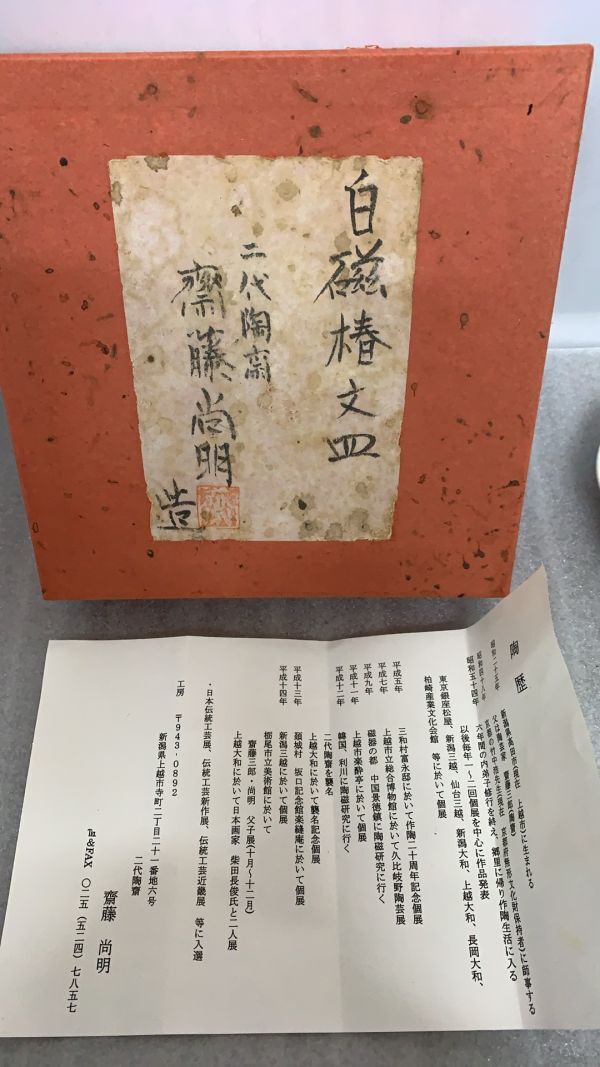 白磁椿文皿
二代陶齋
齋藤尚明
造
陶歴
昭和二十五年 新潟県高田市(現在 上越市)に生まれる
父は陶芸家 齋藤三郎(陶齋)
昭和四十八年 京都の竹中浩先生(現在 京都府無形文化財保持者)に師事する
昭和五十四年 六年間の内弟子修行を終え、郷里に帰り作陶生活に入る
以後毎年一〜二回個展を中心に作品発表
東京銀座松屋、新潟三越、仙台三越、新潟大和、上越大和、長岡大和、
柏崎産業文化会館 等に於いて個展
平成五年 三和村富永邸に於いて作陶二十周年記念個展
平成七年 上越市立総合博物館に於いて久比岐野陶芸展
平成九年 磁器の都 中国景徳鎮に陶磁研究に行く
平成十一年 上越市楽酔亭に於いて個展
平成十二年 韓国、利川に陶磁研究に行く
二代陶齋を襲名
上越大和に於いて襲名記念個展
平成十三年 頚城村 坂口記念館楽縫庵に於いて個展
平成十四年 新潟三越に於いて個展
栃尾市立美術館に於いて
齋藤三郎・尚明 父子展(十月〜十二月)
上越大和に於いて日本画家 柴田長俊氏と二人展
・日本伝統工芸展、伝統工芸新作展、伝統工芸近畿展 等に入選
工房 〒943-0892
新潟県上越市寺町二丁目二十一番地六号
二代陶齋
齋藤 尚明
℡&FAX 〇二五(五二四)七八五七